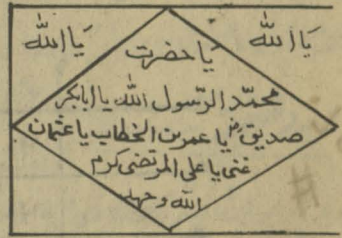 یا الله
یا الله
یا حضرت
محمّد الرّسول الله یا ابابکر
صدیق رض یا عمر بن الخطاب یا عثمان
غنی یا علی المرتضی کرم
الله وجهہ